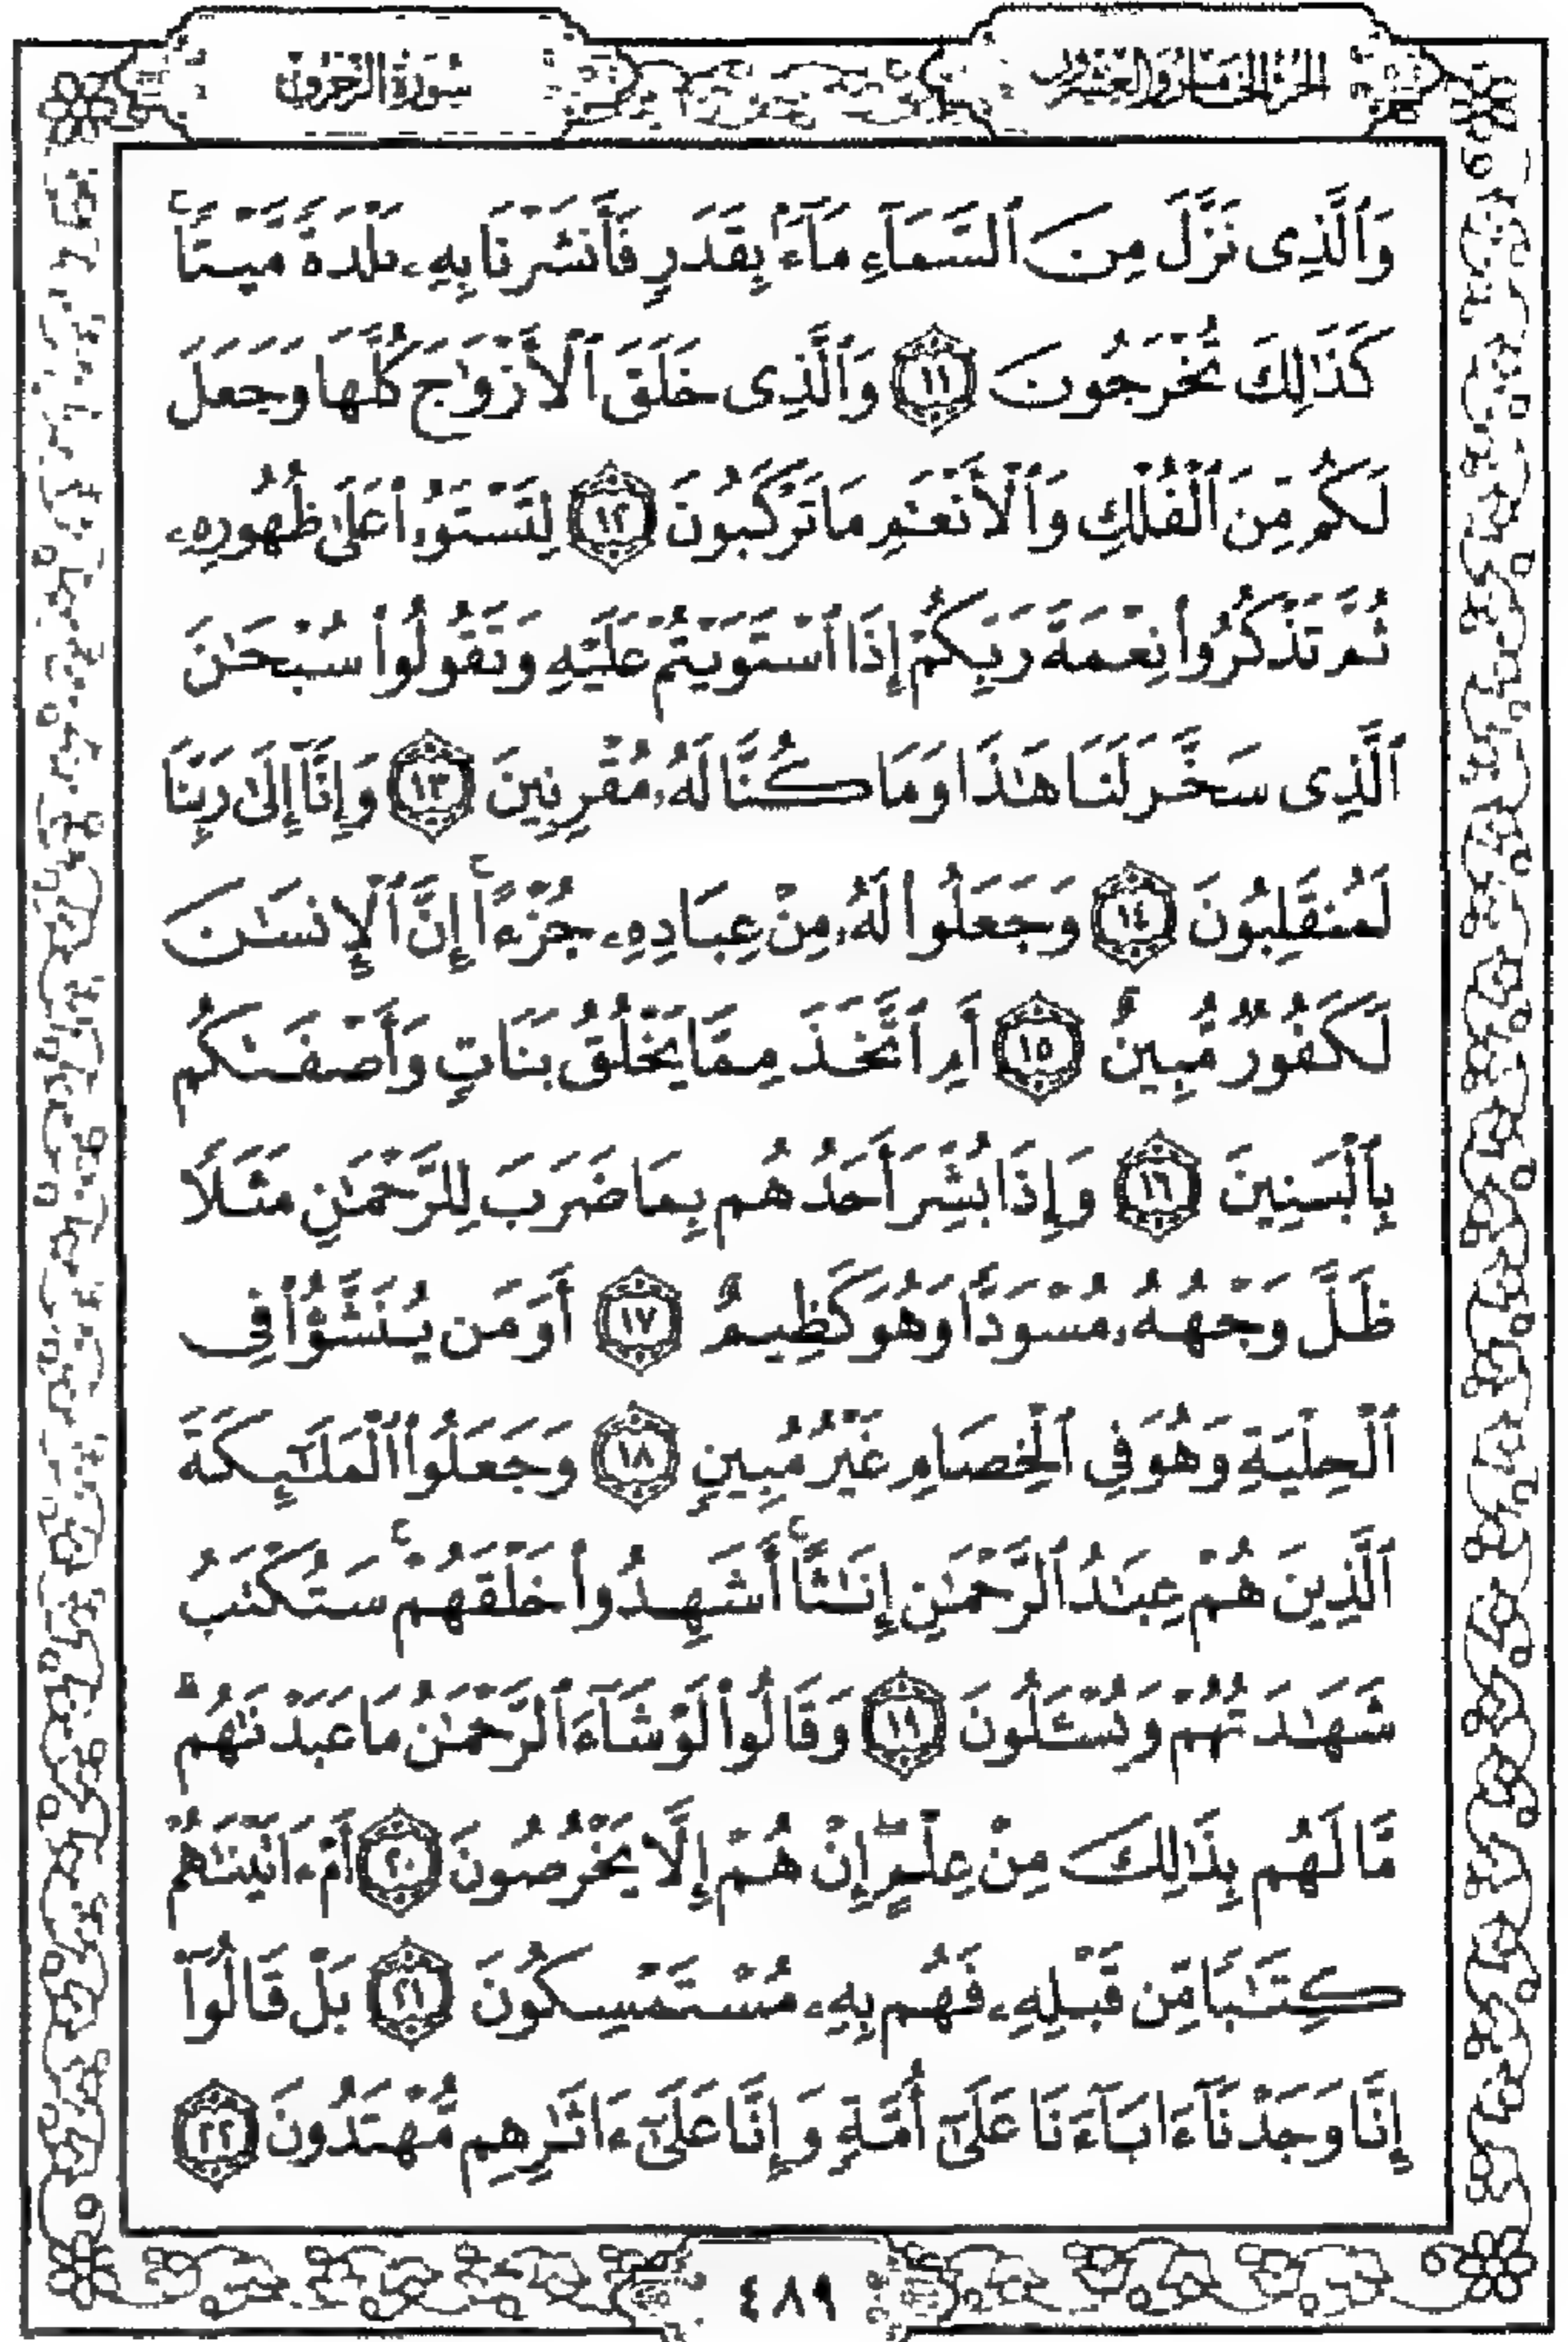 سُورَةُ الزُّخْرُفِ
الجُزْءُ الخَامِسُ وَالعِشْرُونَ
وَٱلَّذِى نَزَّلَ مِنَ ٱلسَّمَآءِ مَآءًۢ بِقَدَرٍ فَأَنشَرْنَا بِهِۦ بَلْدَةً مَّيْتًاۚ
كَذَٰلِكَ تُخْرَجُونَ ١١ وَٱلَّذِى خَلَقَ ٱلْأَزْوَٰجَ كُلَّهَا وَجَعَلَ
لَكُم مِّنَ ٱلْفُلْكِ وَٱلْأَنْعَٰمِ مَا تَرْكَبُونَ ١٢ لِتَسْتَوُۥا۟ عَلَىٰ ظُهُورِهِۦ
ثُمَّ تَذْكُرُوا۟ نِعْمَةَ رَبِّكُمْ إِذَا ٱسْتَوَيْتُمْ عَلَيْهِ وَتَقُولُوا۟ سُبْحَٰنَ
ٱلَّذِى سَخَّرَ لَنَا هَٰذَا وَمَا كُنَّا لَهُۥ مُقْرِنِينَ ١٣ وَإِنَّآ إِلَىٰ رَبِّنَا
لَمُنقَلِبُونَ ١٤ وَجَعَلُوا۟ لَهُۥ مِنْ عِبَادِهِۦ جُزْءًاۚ إِنَّ ٱلْإِنسَٰنَ
لَكَفُورٌ مُّبِينٌ ١٥ أَمِ ٱتَّخَذَ مِمَّا يَخْلُقُ بَنَاتٍ وَأَصْفَىٰكُم
بِٱلْبَنِينَ ١٦ وَإِذَا بُشِّرَ أَحَدُهُم بِمَا ضَرَبَ لِلرَّحْمَٰنِ مَثَلًا
ظَلَّ وَجْهُهُۥ مُسْوَدًّا وَهُوَ كَظِيمٌ ١٧ أَوَمَن يُنَشَّؤُا۟ فِى
ٱلْحِلْيَةِ وَهُوَ فِى ٱلْخِصَامِ غَيْرُ مُبِينٍ ١٨ وَجَعَلُوا۟ ٱلْمَلَٰٓئِكَةَ
ٱلَّذِينَ هُمْ عِبَٰدُ ٱلرَّحْمَٰنِ إِنَٰثًاۚ أَشَهِدُوا۟ خَلْقَهُمْۚ سَتُكْتَبُ
شَهَٰدَتُهُمْ وَيُسْـَٔلُونَ ١٩ وَقَالُوا۟ لَوْ شَآءَ ٱلرَّحْمَٰنُ مَا عَبَدْنَٰهُمۗ
مَّا لَهُم بِذَٰلِكَ مِنْ عِلْمٍۖ إِنْ هُمْ إِلَّا يَخْرُصُونَ ٢٠ أَمْ ءَاتَيْنَٰهُمْ
كِتَٰبًا مِّن قَبْلِهِۦ فَهُم بِهِۦ مُسْتَمْسِكُونَ ٢١ بَلْ قَالُوٓا۟
إِنَّا وَجَدْنَآ ءَابَآءَنَا عَلَىٰٓ أُمَّةٍ وَإِنَّا عَلَىٰٓ ءَاثَٰرِهِم مُّهْتَدُونَ ٢٢
٤٨٩